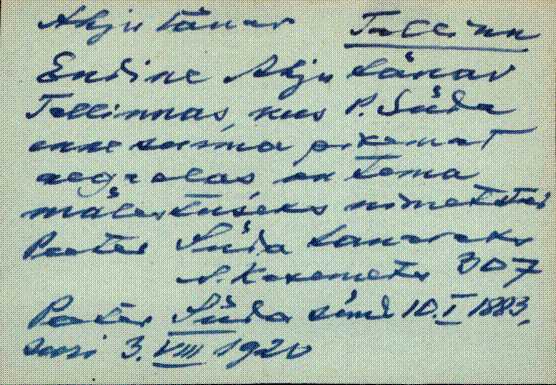 Ahju tänav Tallinn
Endine Ahju tänav
Tallinnas, kus P. Süda
enne surma pikemat
aega elas on tema
mälestuseks nimetatud
Peeter Süda tänavaks
A. Kasemets 307
Peeter Süda sünd. 10. I 1883,
suri 3. VIII 1920